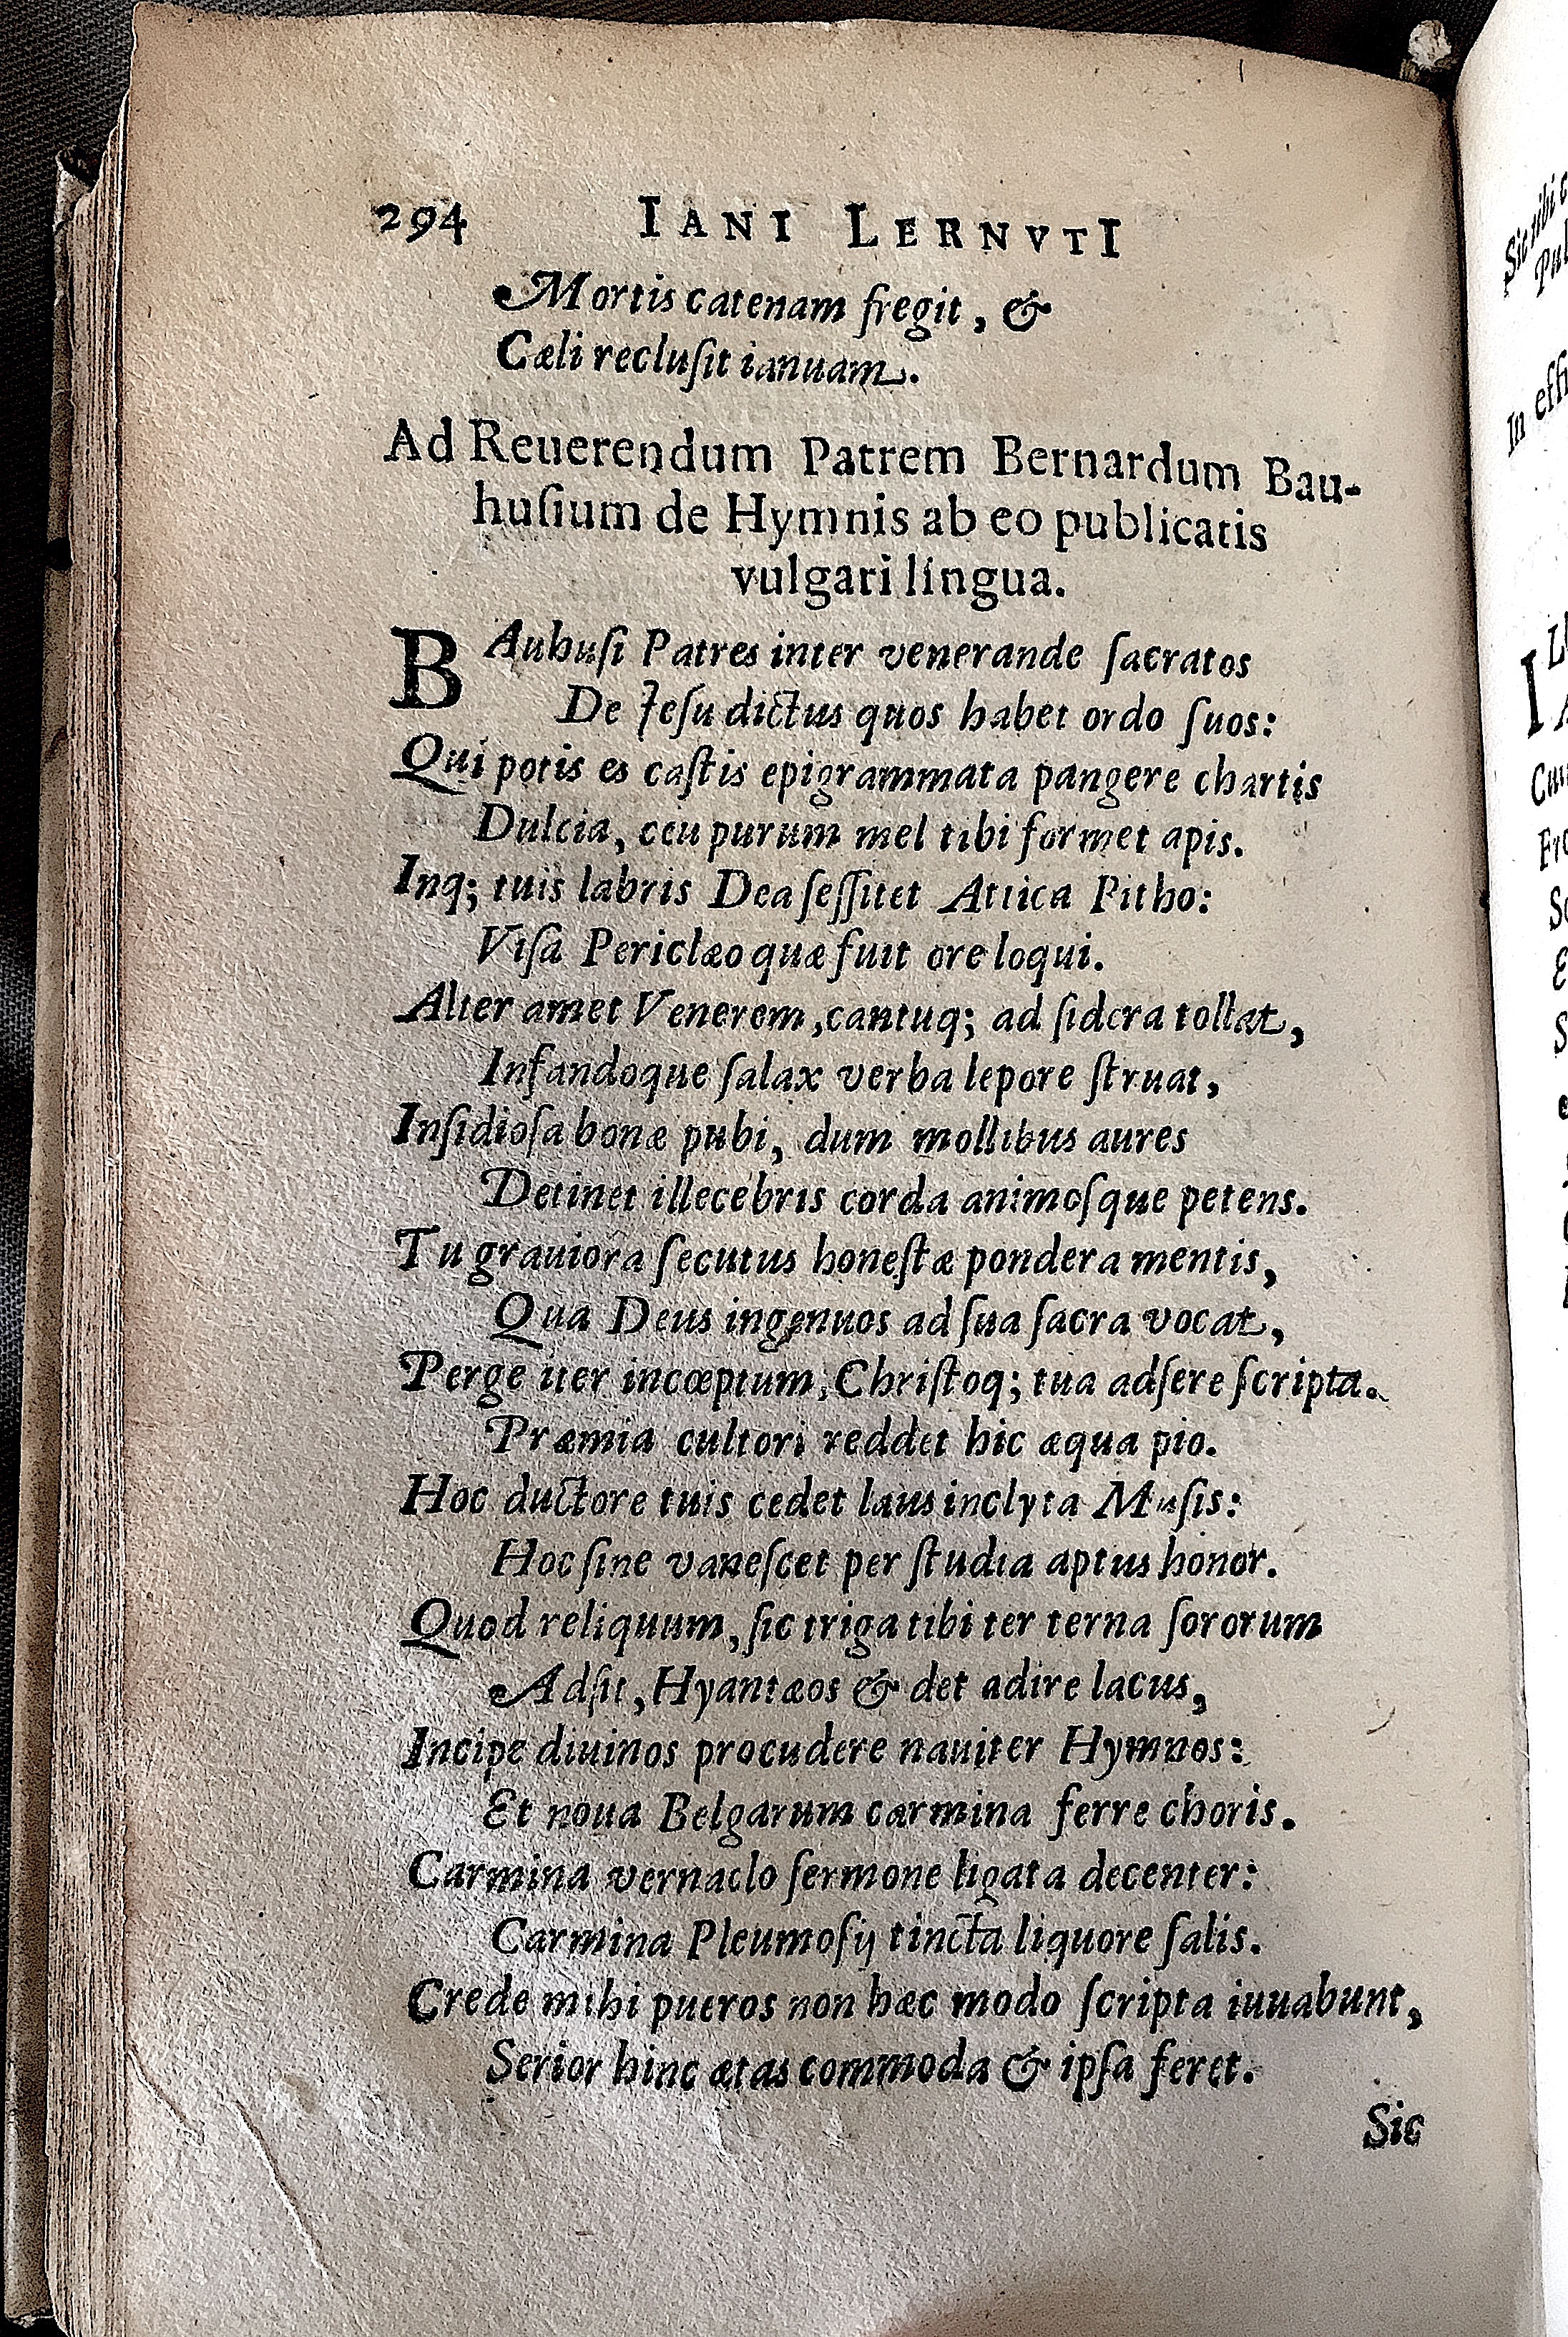 294 IANI LERNVTI
Mortis catenam fregit, &
Cæli reclusit ianuam.
Ad Reuerendum Patrem Bernardum Bau-
husium de Hymnis ab eo publicatis
vulgari lingua.
BAuhusi Patres inter venerande sacratos
De Jesu dictus quos habet ordo suos:
Qui potis es castis epigrammata pangere chartis
Dulcia, ceu purum mel tibi formet apis.
Inq; tuis labris Dea sessitet Attica Pitho:
Visa Periclæo quæ fuit ore loqui.
Alter amet Venerem, cantuq; ad sidera tollat,
Infandoque salax verba lepore struat,
Insidiosa bonæ pubi, dum mollibus aures
Detinet illecebris corda animosque petens.
Tu grauiora secutus honestæ pondera mentis,
Qua Deus ingenuos ad sua sacra vocat,
Perge iter incœptum, Christoq; tua adsere scripta.
Præmia cultori reddet hic æqua pio.
Hoc ductore tuis cedet laus inclyta Musis:
Hoc sine vanescet per studia aptus honor.
Quod reliquum, sic triga tibi ter terna sororum
Adsit, Hyantæos & det adire lacus,
Incipe diuinos procudere nauiter Hymnos:
Et noua Belgarum carmina ferre choris.
Carmina vernaclo sermone ligata decenter:
Carmina Pleumosij tincta liquore salis.
Crede mihi pueros non hæc modo scripta iuuabunt,
Serior hinc ætas commoda & ipsa feret.
Sic